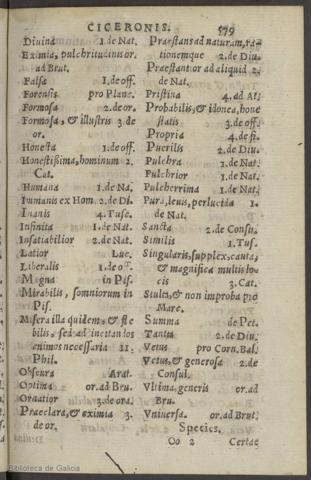 CICERONIS. 579
Diuina 1. de Nat.
Eximia, pulchritudinis or.
ad Brut.
Falsa 1. de off.
Forensis pro Planc.
Formosa 2. de or.
Formosa, & illustris 3. de
or.
Honesta 1. de off.
Honestißima, hominum 2.
Cat.
Humana 1. de Na.
Inmanis ex Hom. 2. de Di.
Inanis 4. Tusc.
Infinita 1. de Nat.
Insatiabilior 2. de Nat.
Latior Luc.
Liberalis 1. de off.
Magna in Pis.
Mirabilis, somniorum in
Pis.
Misera illa quidem, & fle
bilis, sed ad incitandos
animos necessaria 11.
Phil.
Obscura Arat.
Optima or. ad Bru.
Ornatior 3. de ora.
Praeclara, & eximia 3.
de or.
Praestans ad naturam, ra-
tionemque 2. de Diu.
Praestantior ad aliquid 2.
de Nat.
Pristina 4. ad At.
Probabilis, & idonea, hone
statis 3. de off.
Propria 4. de fi.
Puerilis 2. de Diu.
Pulchra 1. de Nat.
Pulchrior 1. de Nat.
Pulcherrima 1. de Nat.
Pura, leuis, perlucida 1.
de Nat.
Sancta 2. de Consu.
Similis 1. Tus.
Singularis, supplex, cauta,
& magnifica multis lo-
cis 3. Cat.
Stulta, & non improba pro
Mare.
Summa de Pet.
Tantis 2. de Diu.
Vetus pro Corn. Bal.
Vetus, & generosa 2. de
Consul.
Vltima, generis or. ad
Bru.
Vniuersa. or. ad Brut.
Species.
Oo 2 Certae
Biblioteca de Galicia